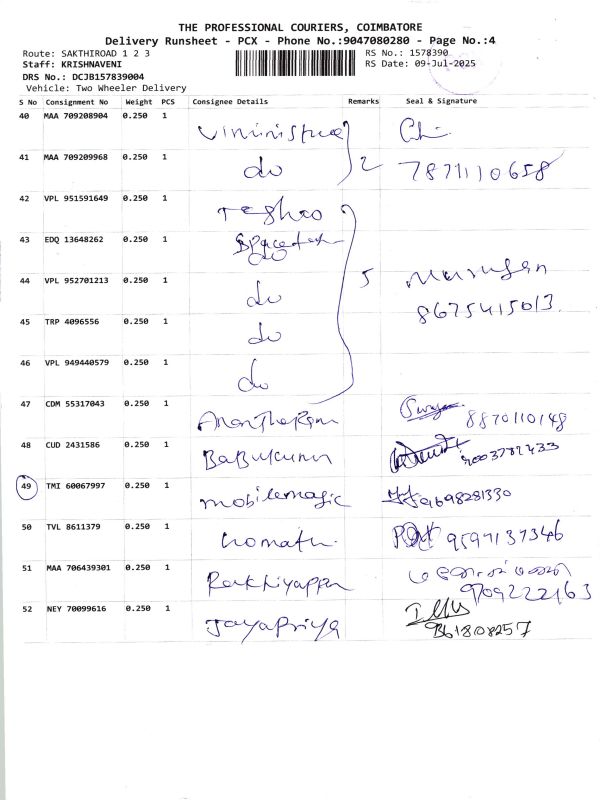 THE PROFESSIONAL COURIERS, COIMBATORE
Delivery Runsheet - PCX - Phone No.:9047080280 - Page No.:4
Route: SAKTHIROAD 1 2 3 RS No.: 1578390
Staff: KRISHNAVENI RS Date: 09-Jul-2025
DRS No.: DCJB157839004
Vehicle: Two Wheeler Delivery
S No Consignment No Weight PCS Consignee Details Remarks Seal & Signature
40 MAA 709208904 0.250 1
41 MAA 709209968 0.250 1 do 2 7871110658
42 VPL 951591649 0.250 1
43 EDQ 13648262 0.250 1 do
44 VPL 952701213 0.250 1 do 5 Murugan
8675415013
45 TRP 4096556 0.250 1 do
46 VPL 949440579 0.250 1 do
47 CDM 55317043 0.250 1 AnanthaRam 8870110148
48 CUD 2431586 0.250 1 Babukumar
49 TMI 60067997 0.250 1 mobilemagic
50 TVL 8611379 0.250 1 9597137346
51 MAA 706439301 0.250 1 Rakkiyappan
9709222163
52 NEY 70099616 0.250 1 Jayapriya